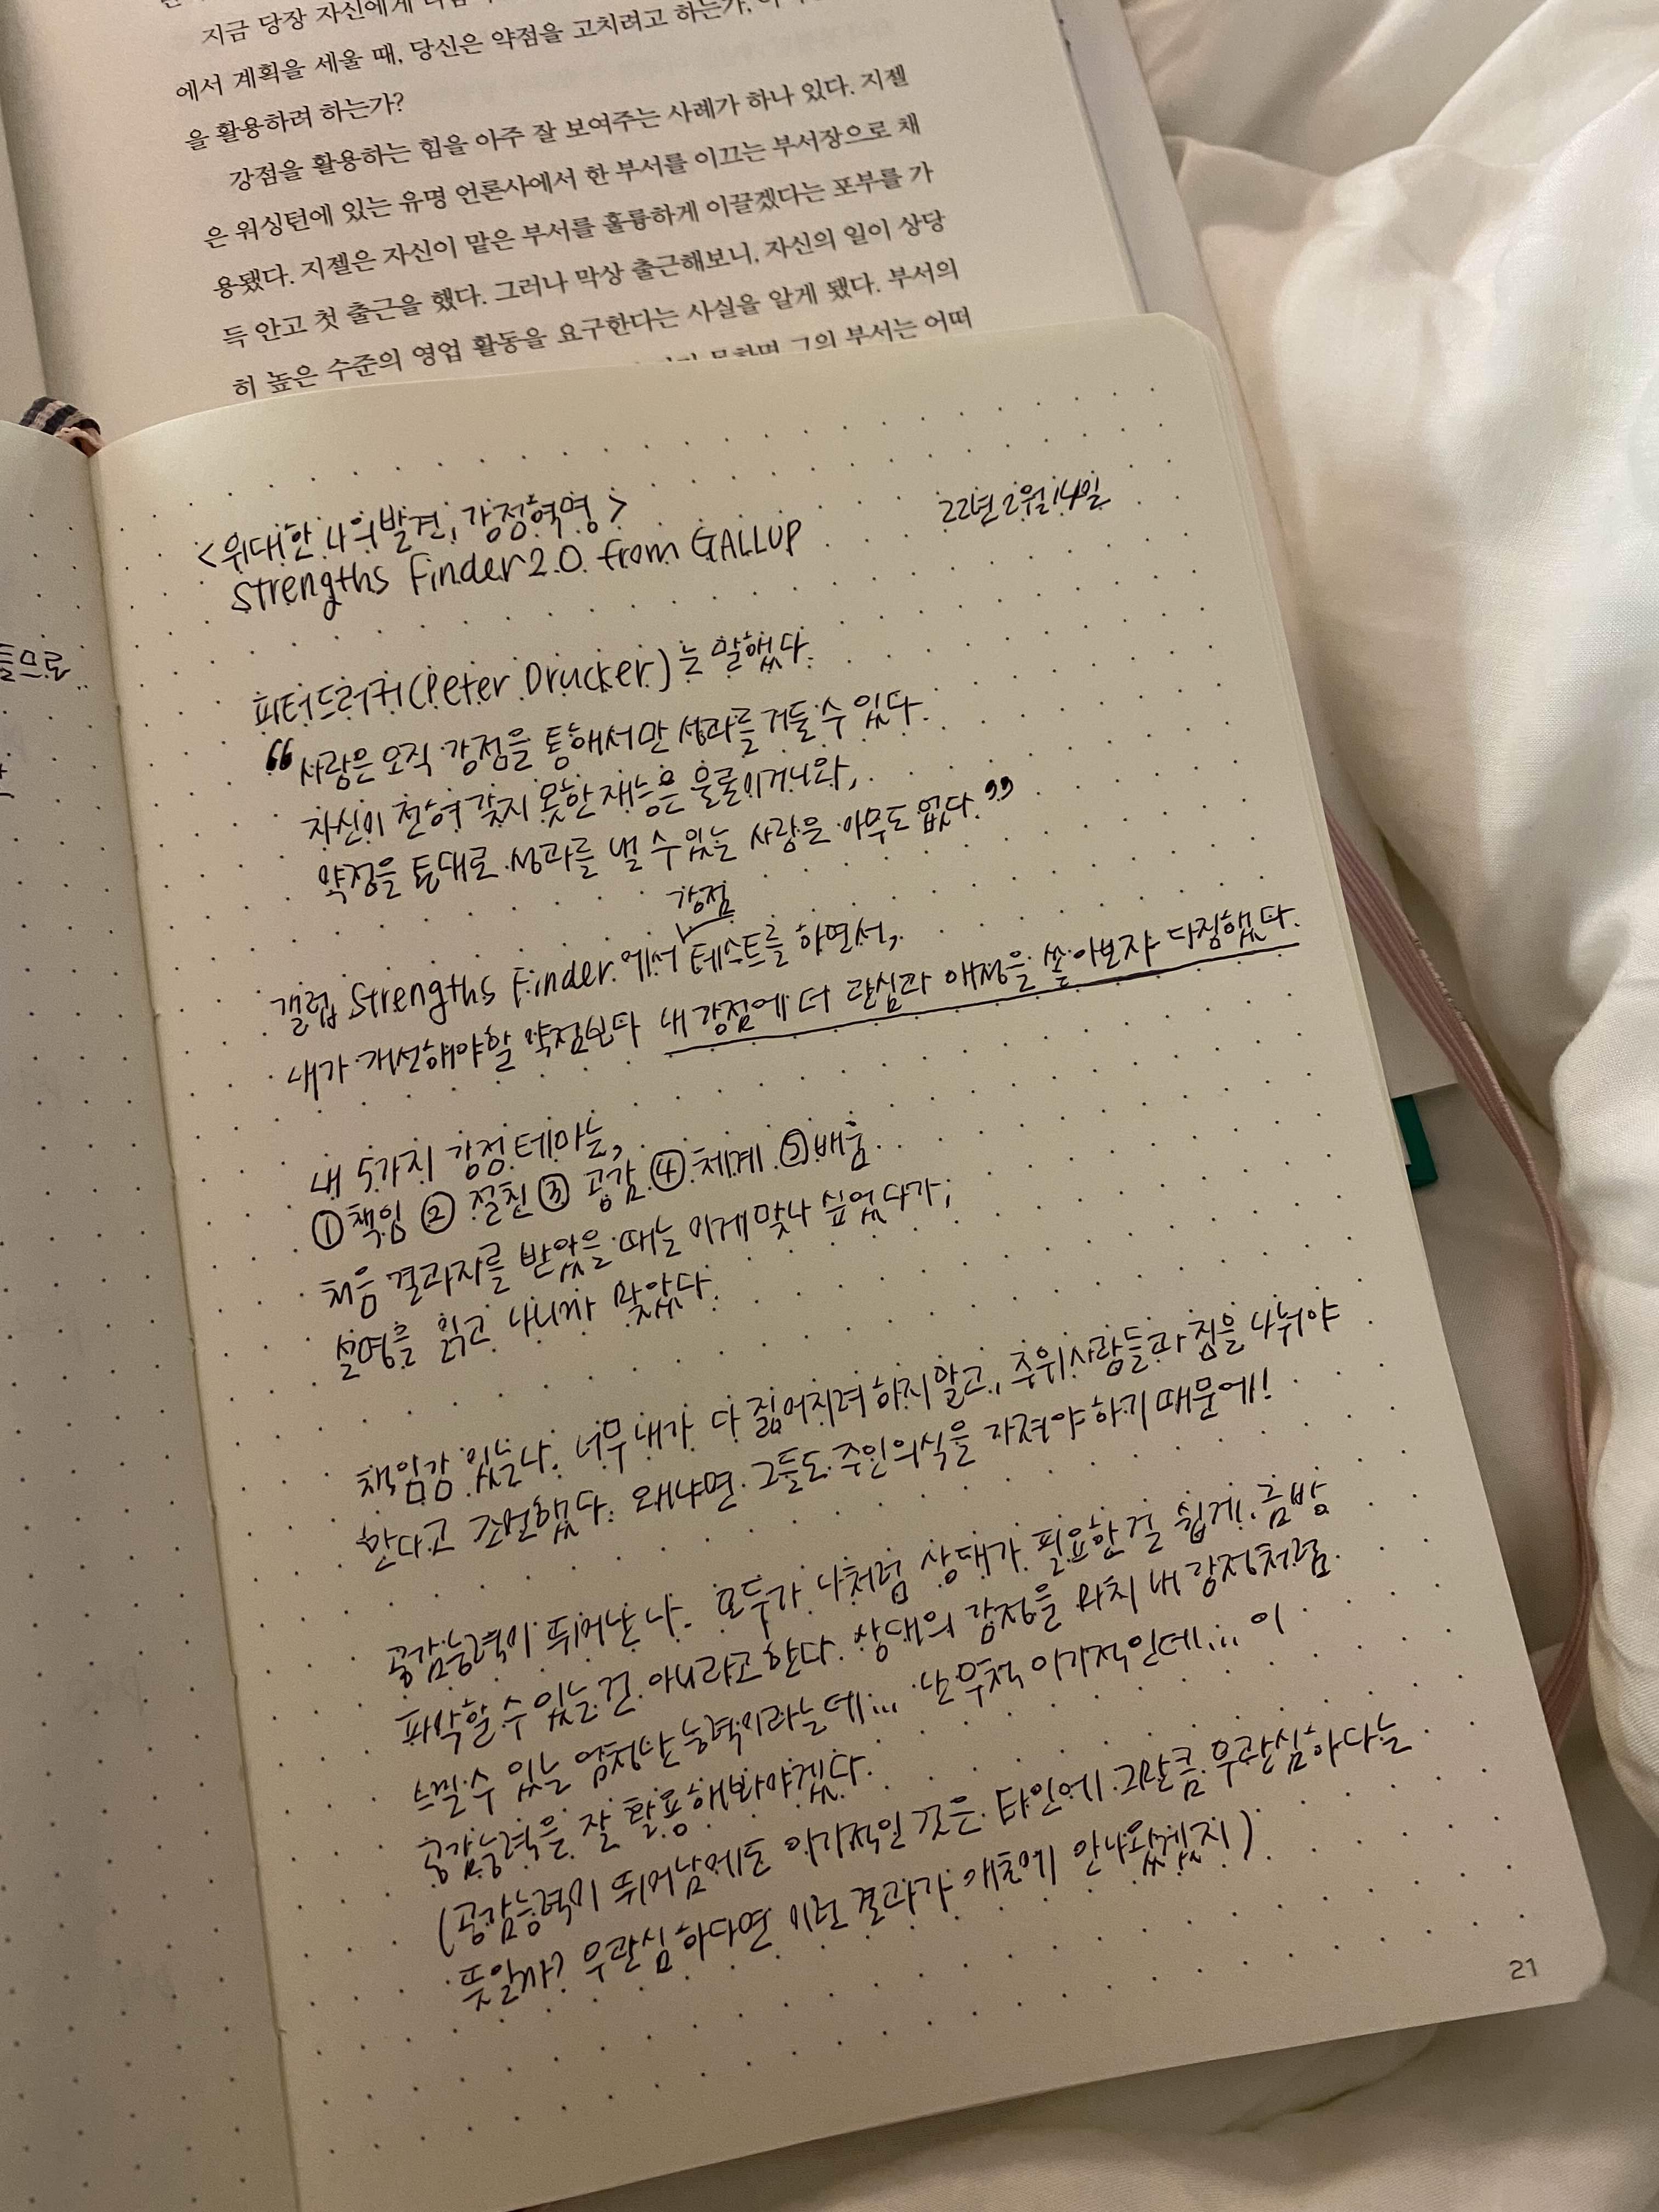 지금 당장 자신에게
에서 계획을 세울 때, 당신은 약점을 고치려고 하는가,
을 활용하려 하는가?
강점을 활용하는 힘을 아주 잘 보여주는 사례가 하나 있다. 지젤
은 워싱턴에 있는 유명 언론사에서 한 부서를 이끄는 부서장으로 채
용됐다. 지젤은 자신이 맡은 부서를 훌륭하게 이끌겠다는 포부를 가
득 안고 첫 출근을 했다. 그러나 막상 출근해보니, 자신의 일이 상당
히 높은 수준의 영업 활동을 요구한다는 사실을 알게 됐다. 부서의
못하면 그의 부서는 어떠
들므로
22년 2월 14일
<위대한 나의 발견, 강점혁명>
Strengths Finder 2.0 from GALLUP
피터드러커(Peter Drucker)는 말했다.
“사람은 오직 강점을 통해서만 성과를 거둘 수 있다.
자신이 전혀 갖지 못한 재능은 물론이거니와,
약점을 토대로 성과를 낼 수 있는 사람은 아무도 없다.”
강점
갤럽 Strengths Finder 에서 테스트를 하면서,
내가 개선해야할 약점보다 내 강점에 더 관심과 애정을 쏟아보자 다짐했다.
내 5가지 강점 테마는,
① 책임 ② 절친 ③ 공감 ④ 체계 ⑤ 배움
처음 결과지를 받았을 때는 이게 맞나 싶었다가,
설명을 읽고 나니까 맞았다.
책임감 있는 나. 너무 내가 다 짊어지려 하지 말고, 주위사람들과 짐을 나눠야
한다고 조언했다. 왜냐면 그들도 주인의식을 가져야 하기 때문에!
공감능력이 뛰어난 나. 모두가 나처럼 상대가 필요한 걸 쉽게, 금방
파악할 수 있는 건 아니라고 한다. 상대의 감정을 마치 내 감정처럼
느낄 수 있는 엄청난 능력이라는데... 난 무척 이기적인데... 이
공감능력을 잘 활용해봐야겠다.
(공감능력이 뛰어남에도 이기적인 것은 타인에 그만큼 무관심하다는
뜻일까? 무관심하다면 이런 결과가 애초에 안나왔겠지)
21